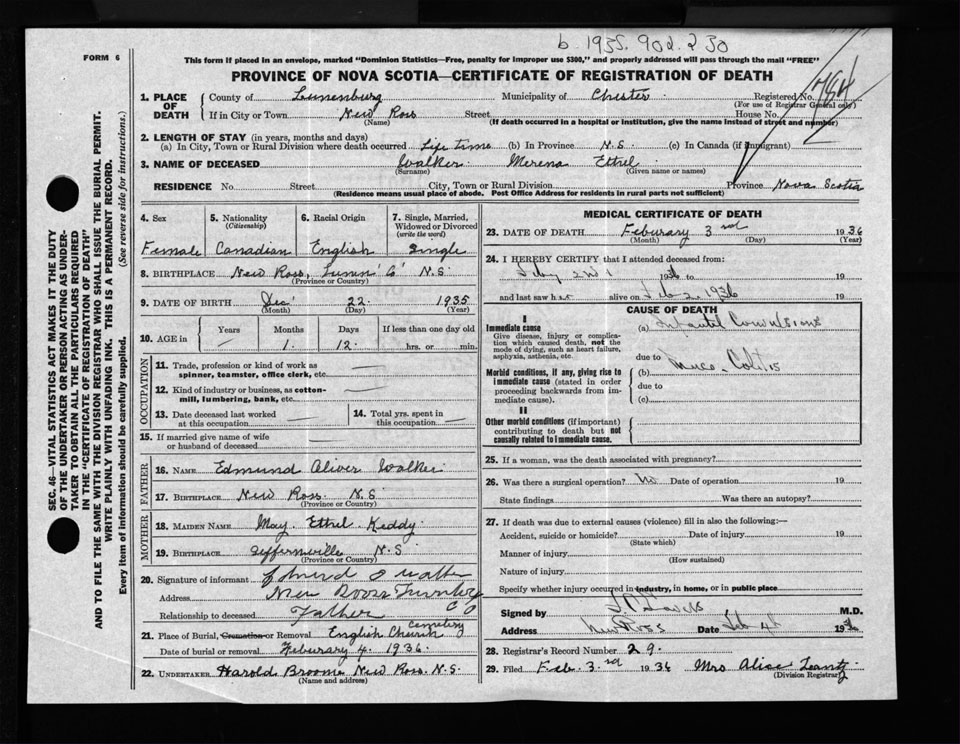 b. 1935. 90d. 230
FORM 6
This form if placed in an envelope, marked "Dominion Statistics—Free, penalty for improper use $300," and properly addressed will pass through the mail "FREE"
PROVINCE OF NOVA SCOTIA—CERTIFICATE OF REGISTRATION OF DEATH
1. PLACE OF DEATH
County of Lunenburg Municipality of Chester Registered No. 784
(For use of Registrar General only)
If in City or Town New Ross Street House No.
(Name) (If death occurred in a hospital or institution, give the name instead of street and number)
2. LENGTH OF STAY (in years, months and days)
(a) In City, Town or Rural Division where death occurred Life time (b) In Province N.S. (c) In Canada (if immigrant)
3. NAME OF DECEASED Walker Merena Ethel
(Surname) (Given name or names)
RESIDENCE No. Street City, Town or Rural Division Province Nova Scotia
(Residence means usual place of abode. Post Office Address for residents in rural parts not sufficient)
4. Sex 5. Nationality (Citizenship) 6. Racial Origin 7. Single, Married, Widowed or Divorced (write the word)
Female Canadian English Single
8. BIRTHPLACE New Ross, Lunen' Co' N.S.
(Province or Country)
9. DATE OF BIRTH Dec' 22. 1935
(Month) (Day) (Year)
10. AGE in Years Months Days If less than one day old
1. 12. hrs. or min.
OCCUPATION
11. Trade, profession or kind of work as spinner, teamster, office clerk, etc.
12. Kind of industry or business, as cotton-mill, lumbering, bank, etc.
13. Date deceased last worked at this occupation
14. Total yrs. spent in this occupation
15. If married give name of wife or husband of deceased
FATHER
16. NAME Edmund Oliver Walker
17. BIRTHPLACE New Ross. N.S
(Province or Country)
MOTHER
18. MAIDEN NAME May. Ethel Keddy.
19. BIRTHPLACE Seffernville N.S
(Province or Country)
20. Signature of informant Edmund O Walker
Address New Ross
Relationship to deceased Father
21. Place of Burial, Cremation or Removal English Church Cemetery
Date of burial or removal Feburary 4. 1936.
22. UNDERTAKER Harold Broome New Ross. N.S.
(Name and address)
MEDICAL CERTIFICATE OF DEATH
23. DATE OF DEATH Feburary 3rd 1936
(Month) (Day) (Year)
24. I HEREBY CERTIFY that I attended deceased from:
1936 to 19
and last saw her alive on Feb 2 1936 19
CAUSE OF DEATH
I
Immediate cause
Give disease, injury or complication which caused death, not the mode of dying, such as heart failure, asphyxia, asthenia, etc.
(a) Infantil Convulsions
due to
Morbid conditions, if any, giving rise to immediate cause (stated in order proceeding backwards from immediate cause).
(b) Muco-Colitis
due to
(c)
II
Other morbid conditions (if important) contributing to death but not causally related to immediate cause.
25. If a woman, was the death associated with pregnancy?
26. Was there a surgical operation? No Date of operation 19
State findings Was there an autopsy?
27. If death was due to external causes (violence) fill in also the following:—
Accident, suicide or homicide? Date of injury 19
(State which)
Manner of injury
(How sustained)
Nature of injury
Specify whether injury occurred in industry, in home, or in public place
Signed by M.D.
Address New Ross Date Feb 4th 1936
28. Registrar's Record Number 29.
29. Filed Feb. 3rd 1936 Mrs Alice Lantz
(Division Registrar)
SEC. 46—VITAL STATISTICS ACT MAKES IT THE DUTY
OF THE UNDERTAKER OR PERSON ACTING AS UNDER-
TAKER TO OBTAIN ALL THE PARTICULARS REQUIRED
IN THE "CERTIFICATE OF REGISTRATION OF DEATH"
AND TO FILE THE SAME WITH THE DIVISION REGISTRAR WHO SHALL ISSUE THE BURIAL PERMIT.
WRITE PLAINLY WITH UNFADING INK. THIS IS A PERMANENT RECORD.
Every item of information should be carefully supplied. (See reverse side for instructions.)